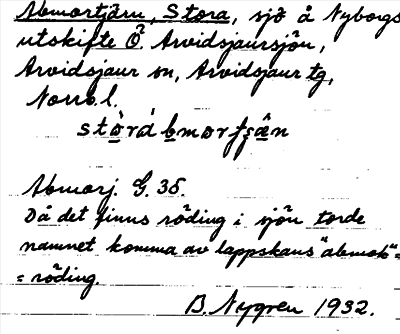 Abmortjärn, Stora, sjö å Nyborgs
utskifte Ö. Arvidsjaursjön,
Arvidsjaur sn, Arvidsjaur tg,
Norrb.l.
Abmorj. G. 35.
Då det finns röding i sjön torde
namnet komma av lappskans "abmok"=
= röding.
B. Nygren 1932.